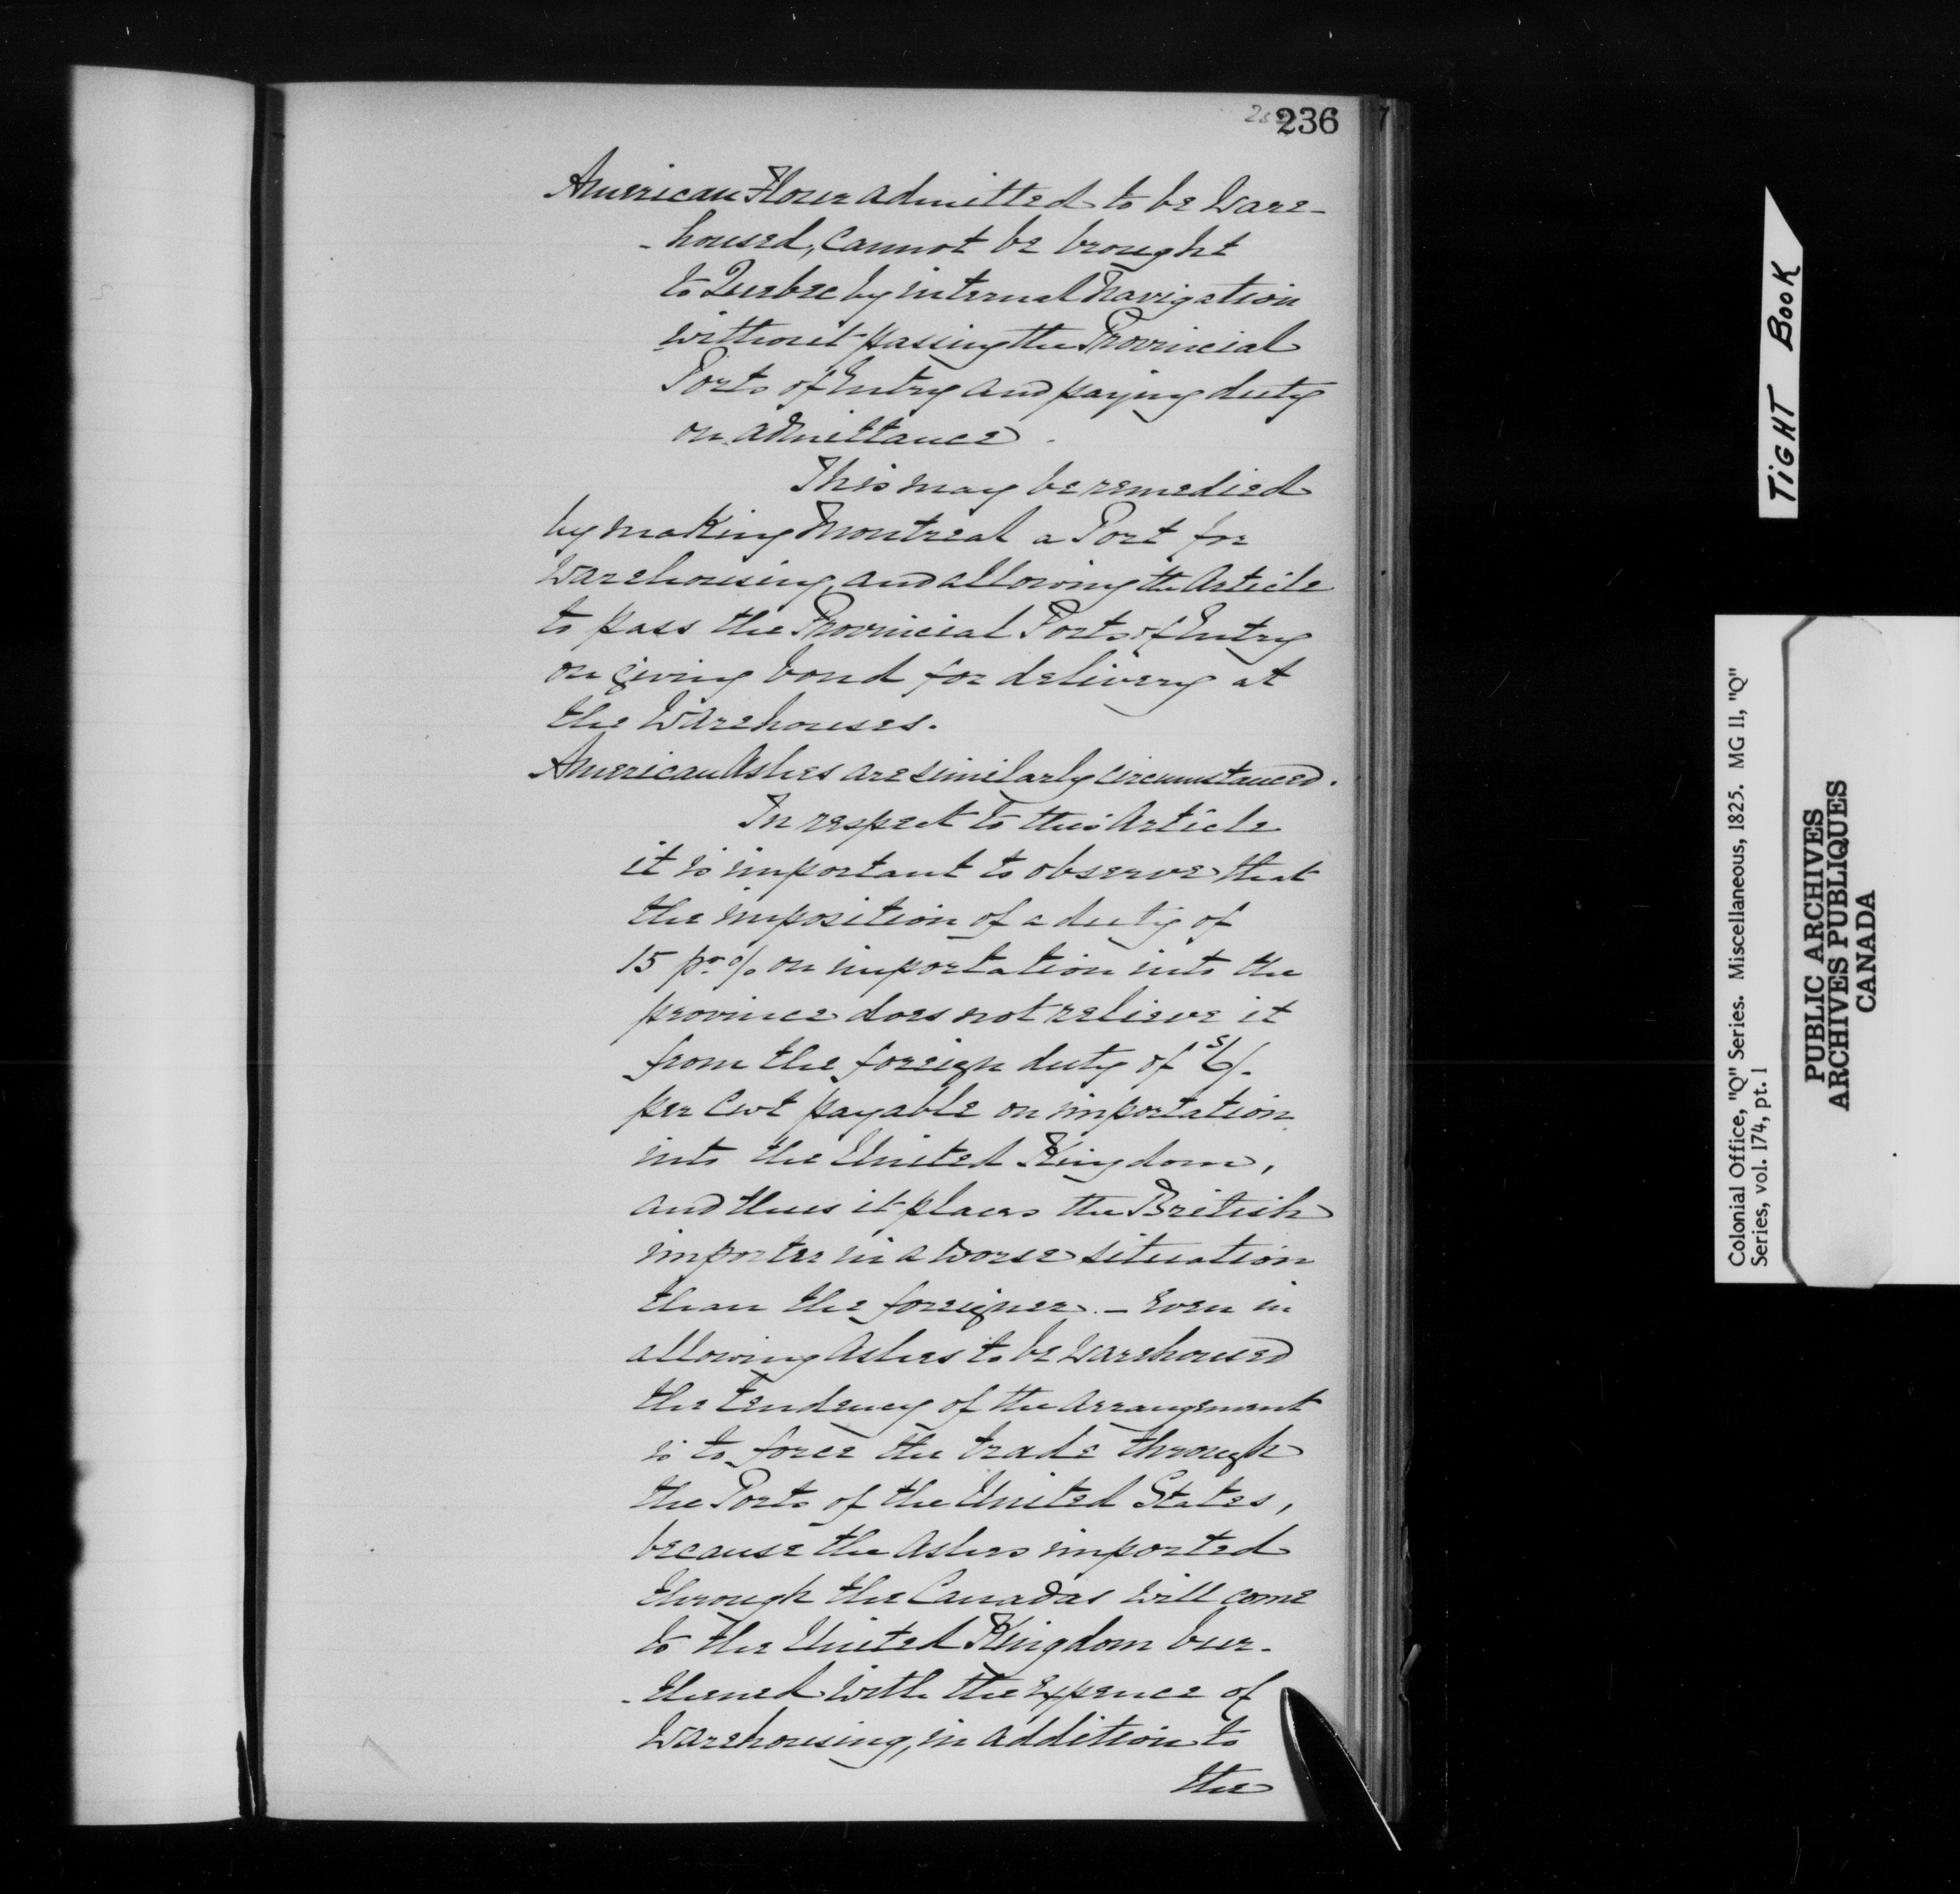 236
American Flour admitted to be Ware-
- housed, cannot be brought
to Quebec by internal Navigation
without passing the Provincial
Ports of Entry and paying duty
on admittance.
This may be remedied
by making Montreal a Port for
Warehousing and allowing the Article
to pass the Provincial Ports of Entry
on giving bond for delivery at
the Warehouses.
American Ashes are similarly circumstanced.
In respect to this Article
it is important to observe that
the imposition of a duty of
15 pr % on importation into the
province does not relieve it
from the foreign duty of 6s/.
per Cwt payable on importation
into the United Kingdom,
and thus it places the British
importer in a worse situation
than the foreigner. - Even in
allowing Ashes to be Warehoused
the tendency of the Arrangement
is to force the trade through
the Ports of the United States,
because the Ashes imported
through the Canadas will come
to the United Kingdom bur-
- thened with the expence of
Warehousing, in addition to
the
TIGHT BOOK
Colonial Office, "Q" Series. Miscellaneous, 1825. MG 11, "Q"
Series, vol. 174, pt. 1
PUBLIC ARCHIVES
ARCHIVES PUBLIQUES
CANADA